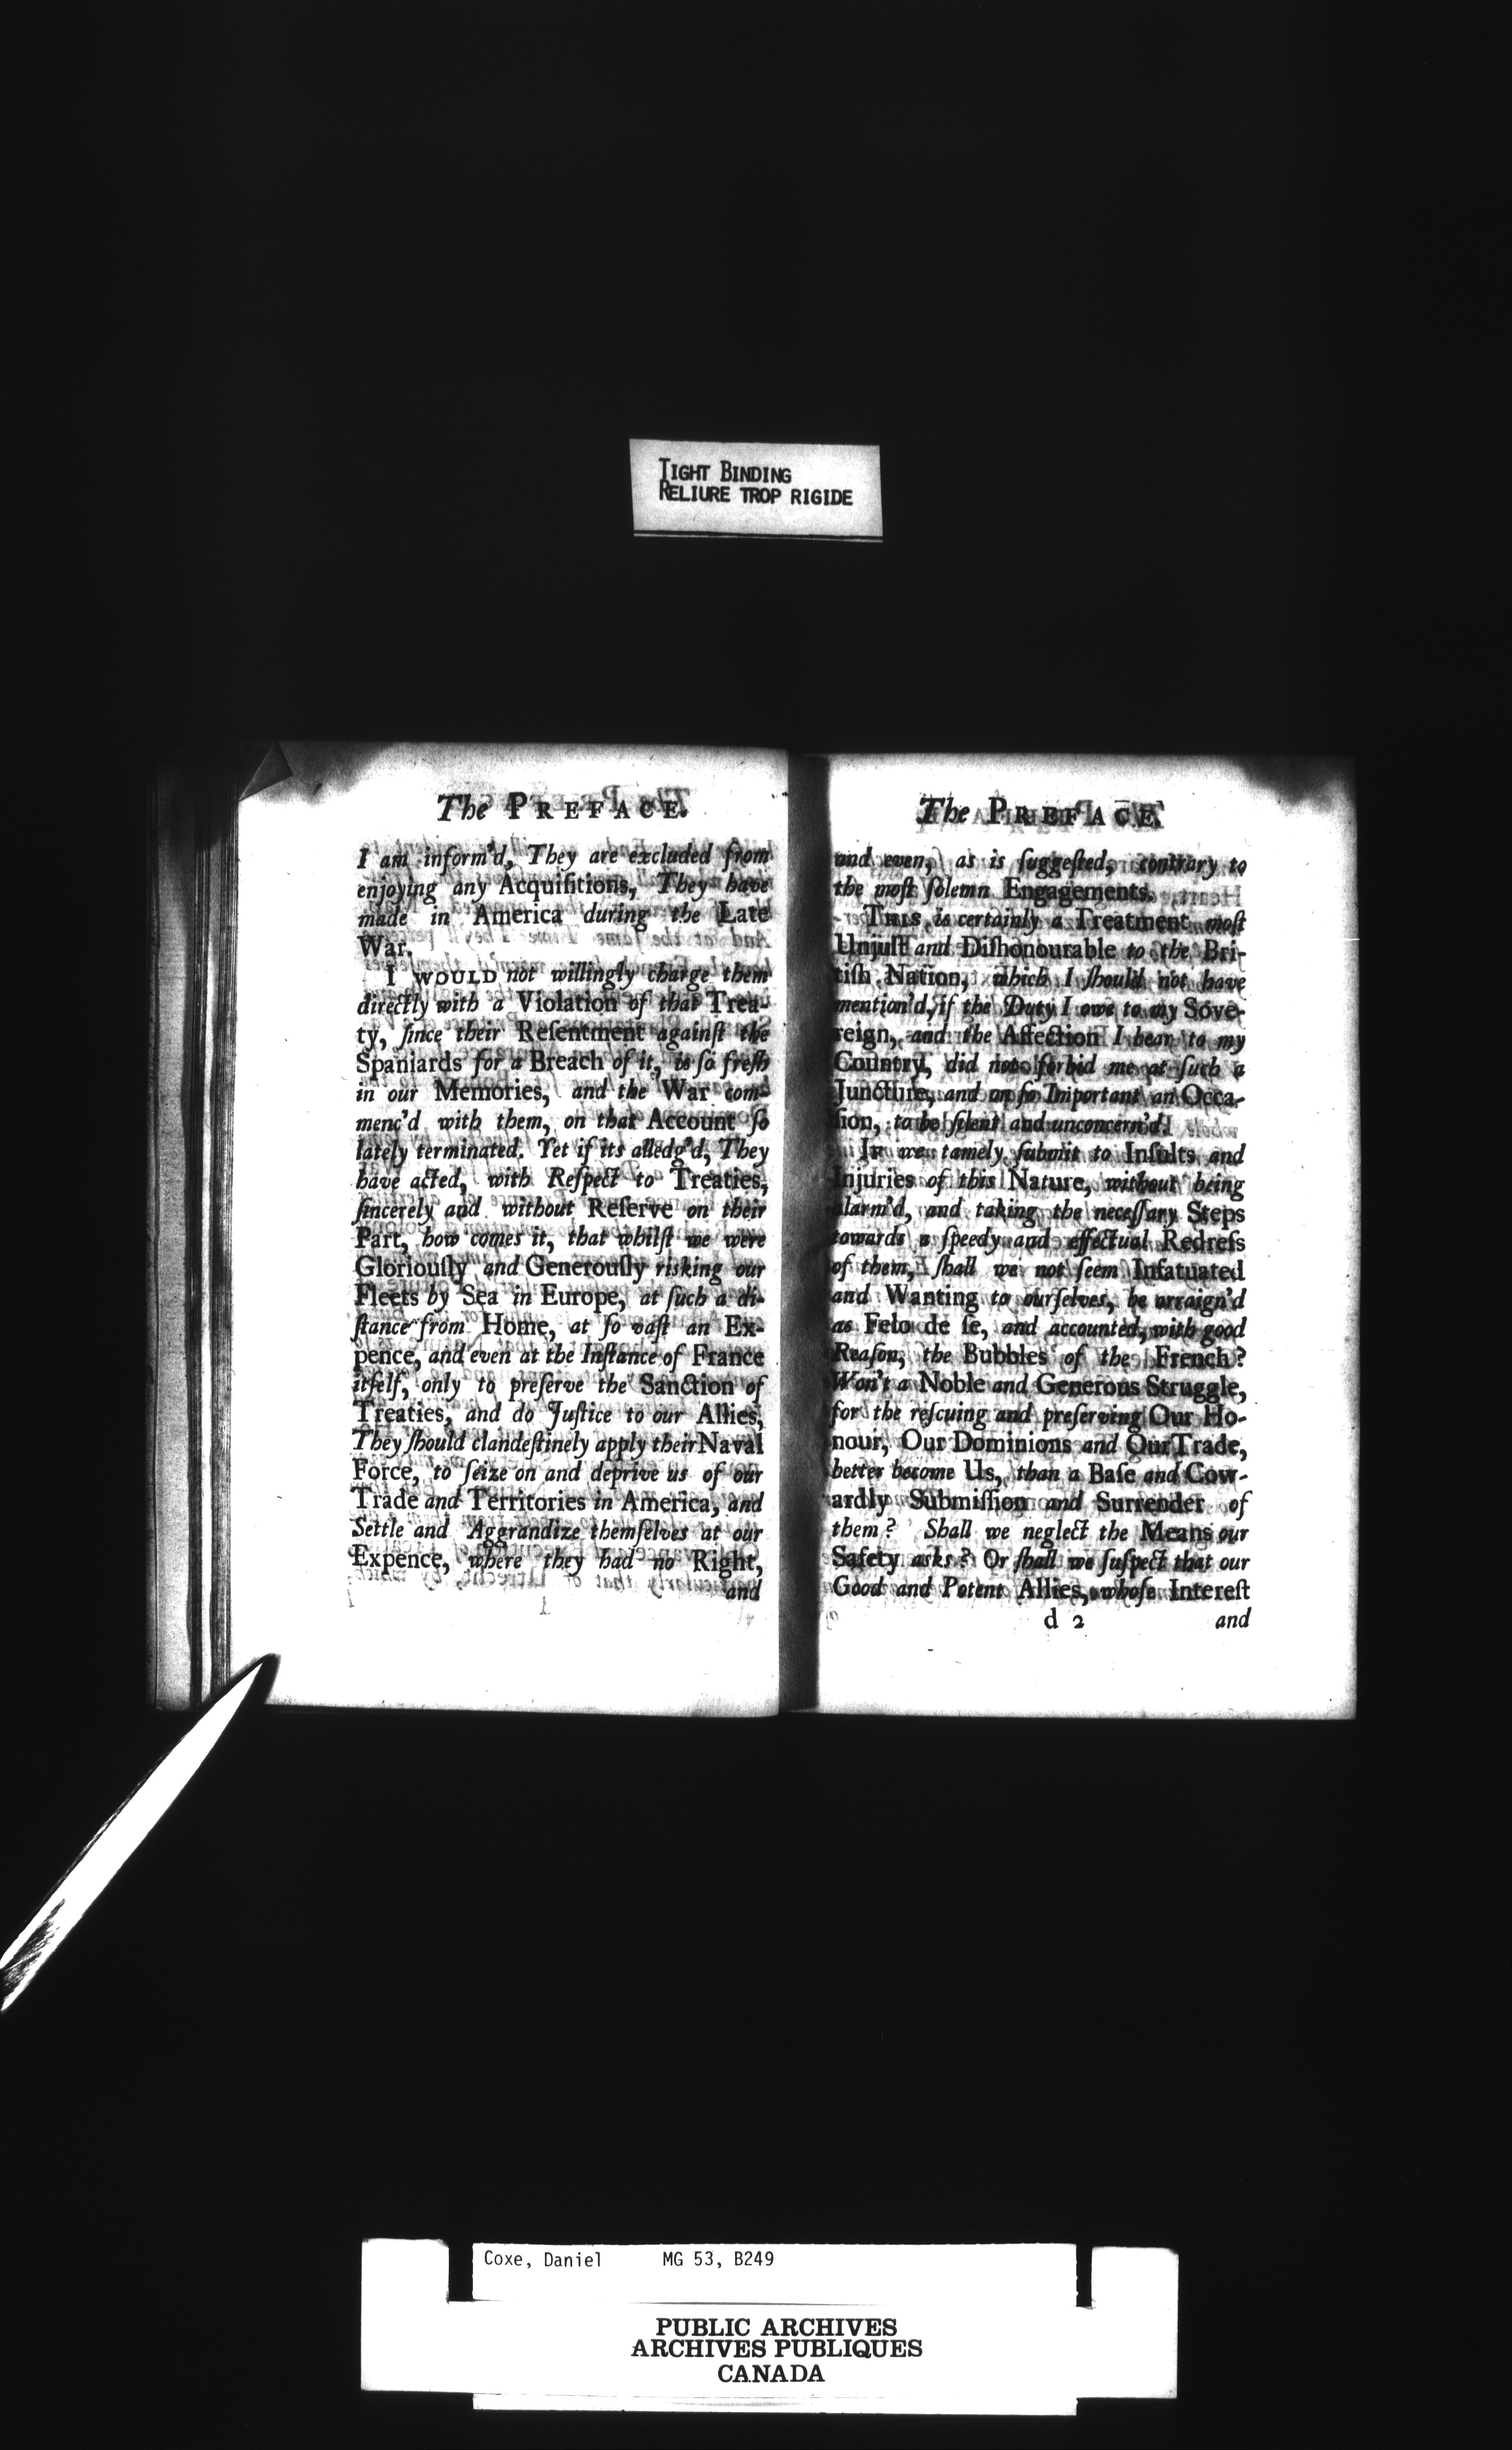 TIGHT BINDING
RELIURE TROP RIGIDE
The PREFACE.
I am inform'd, They are excluded from
enjoying any Acquiſitions, They have
made in America during the Late
War.
I WOULD not willingly charge them
directly with a Violation of that Trea-
ty, ſince their Reſentment againſt the
Spaniards for a Breach of it, is ſo freſh
in our Memories, and the War com-
menc'd with them, on that Account ſo
lately terminated. Yet if its alledg'd, They
have acted, with Reſpect to Treaties,
ſincerely and without Reſerve on their
Part, how comes it, that whilſt we were
Gloriouſly and Generouſly risking our
Fleets by Sea in Europe, at ſuch a di-
ſtance from Home, at ſo vaſt an Ex-
pence, and even at the Inſtance of France
itſelf, only to preſerve the Sanction of
Treaties, and do Juſtice to our Allies,
They ſhould clandeſtinely apply their Naval
Force, to ſeize on and deprive us of our
Trade and Territories in America, and
Settle and Aggrandize themſelves at our
Expence, where they had no Right,
and
The PREFACE.
and even, as is ſuggeſted, contrary to
the moſt ſolemn Engagements.
THIS is certainly a Treatment moſt
Unjuſt and Diſhonourable to the Bri-
tiſh Nation, which I ſhould not have
mention'd, if the Duty I owe to my Sove-
reign, and the Affection I bear to my
Country, did not forbid me at ſuch a
Juncture, and on ſo Important an Occa-
ſion, to be ſilent and unconcern'd.
IF we tamely ſubmit to Inſults and
Injuries of this Nature, without being
alarm'd, and taking the neceſſary Steps
towards a ſpeedy and effectual Redreſs
of them, ſhall we not ſeem Infatuated
and Wanting to ourſelves, be arraign'd
as Felo de ſe, and accounted, with good
Reaſon, the Bubbles of the French?
Won't a Noble and Generous Struggle,
for the reſcuing and preſerving Our Ho-
nour, Our Dominions and Our Trade,
better become Us, than a Baſe and Cow-
ardly Submiſſion and Surrender of
them? Shall we neglect the Means our
Safety asks? Or ſhall we ſuſpect that our
Good and Potent Allies, whoſe Intereſt
d 2 and
Coxe, Daniel MG 53, B249
PUBLIC ARCHIVES
ARCHIVES PUBLIQUES
CANADA